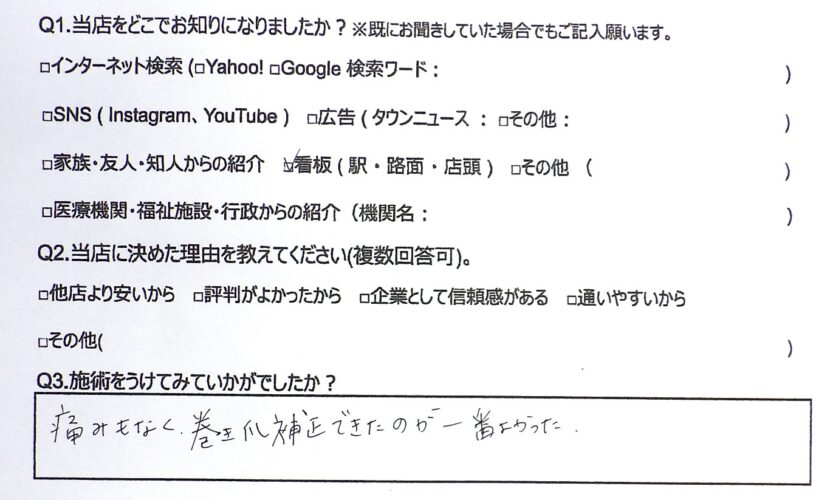 Q1.当店をどこでお知りになりましたか？※既にお聞きしていた場合でもご記入願います。
□インターネット検索 (□Yahoo! □Google 検索ワード： )
□SNS ( Instagram、YouTube ) □広告 ( タウンニュース ： □その他： )
□家族・友人・知人からの紹介 ☑看板 ( 駅・路面・店頭 ) □その他 （ )
□医療機関・福祉施設・行政からの紹介（機関名： )
Q2.当店に決めた理由を教えてください(複数回答可)。
□他店より安いから □評判がよかったから □企業として信頼感がある □通いやすいから
□その他( )
Q3.施術をうけてみていかがでしたか？
痛みもなく、巻き爪補正できたのが一番よかった.